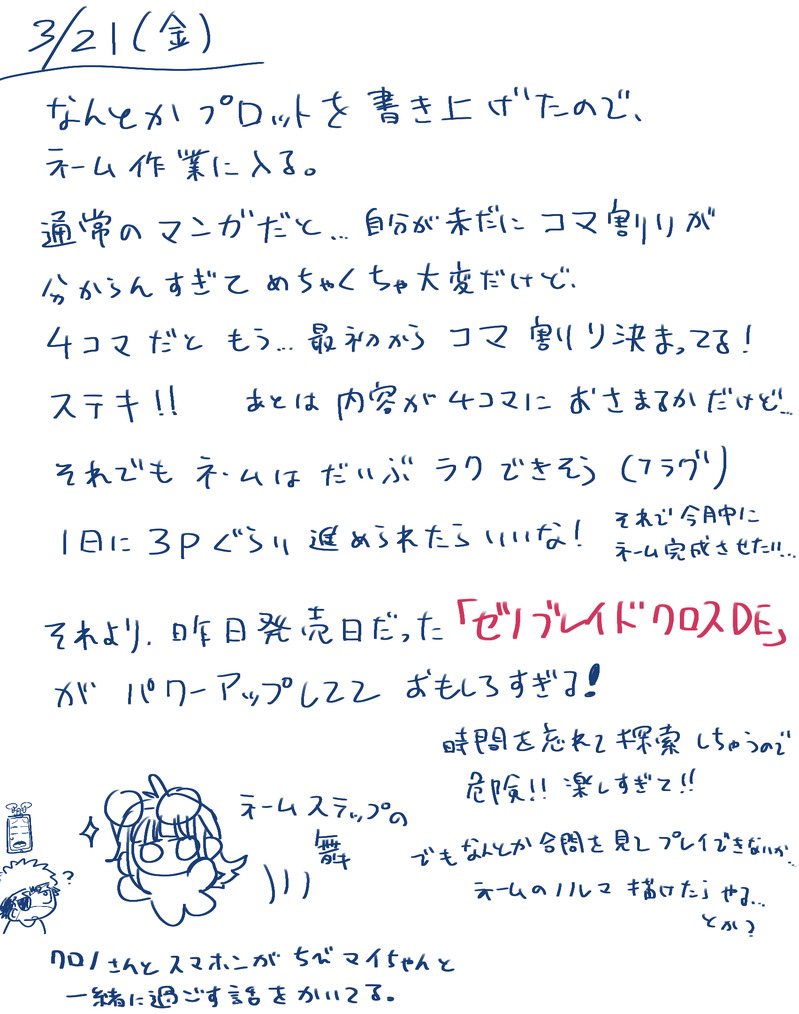 3/21(金)
なんとかプロットを書き上げたので、
ネーム作業に入る。
通常のマンガだと…自分が未だにコマ割りが
分からんすぎてめちゃくちゃ大変だけど、
4コマだともう…最初からコマ割り決まってる!
ステキ!! あとは内容が4コマにおさまるかだけど…
それでもネームはだいぶラクできそう(フラグ)
1日に3Pぐらい進められたらいいな!
それで今月中に
ネーム完成させたい…
それより、昨日発売日だった「ゼノブレイドクロスDE」
がパワーアップしてておもしろすぎる!
時間を忘れて探索しちゃうので
危険!!楽しすぎて!!
でもなんとか合間を見てプレイできないか…
ネームのノルマ描けたらやる…
とか?
ネームステップの
舞
?
クロノさんとスマホンがちびマイちゃんと
一緒に過ごす話をかいてる。